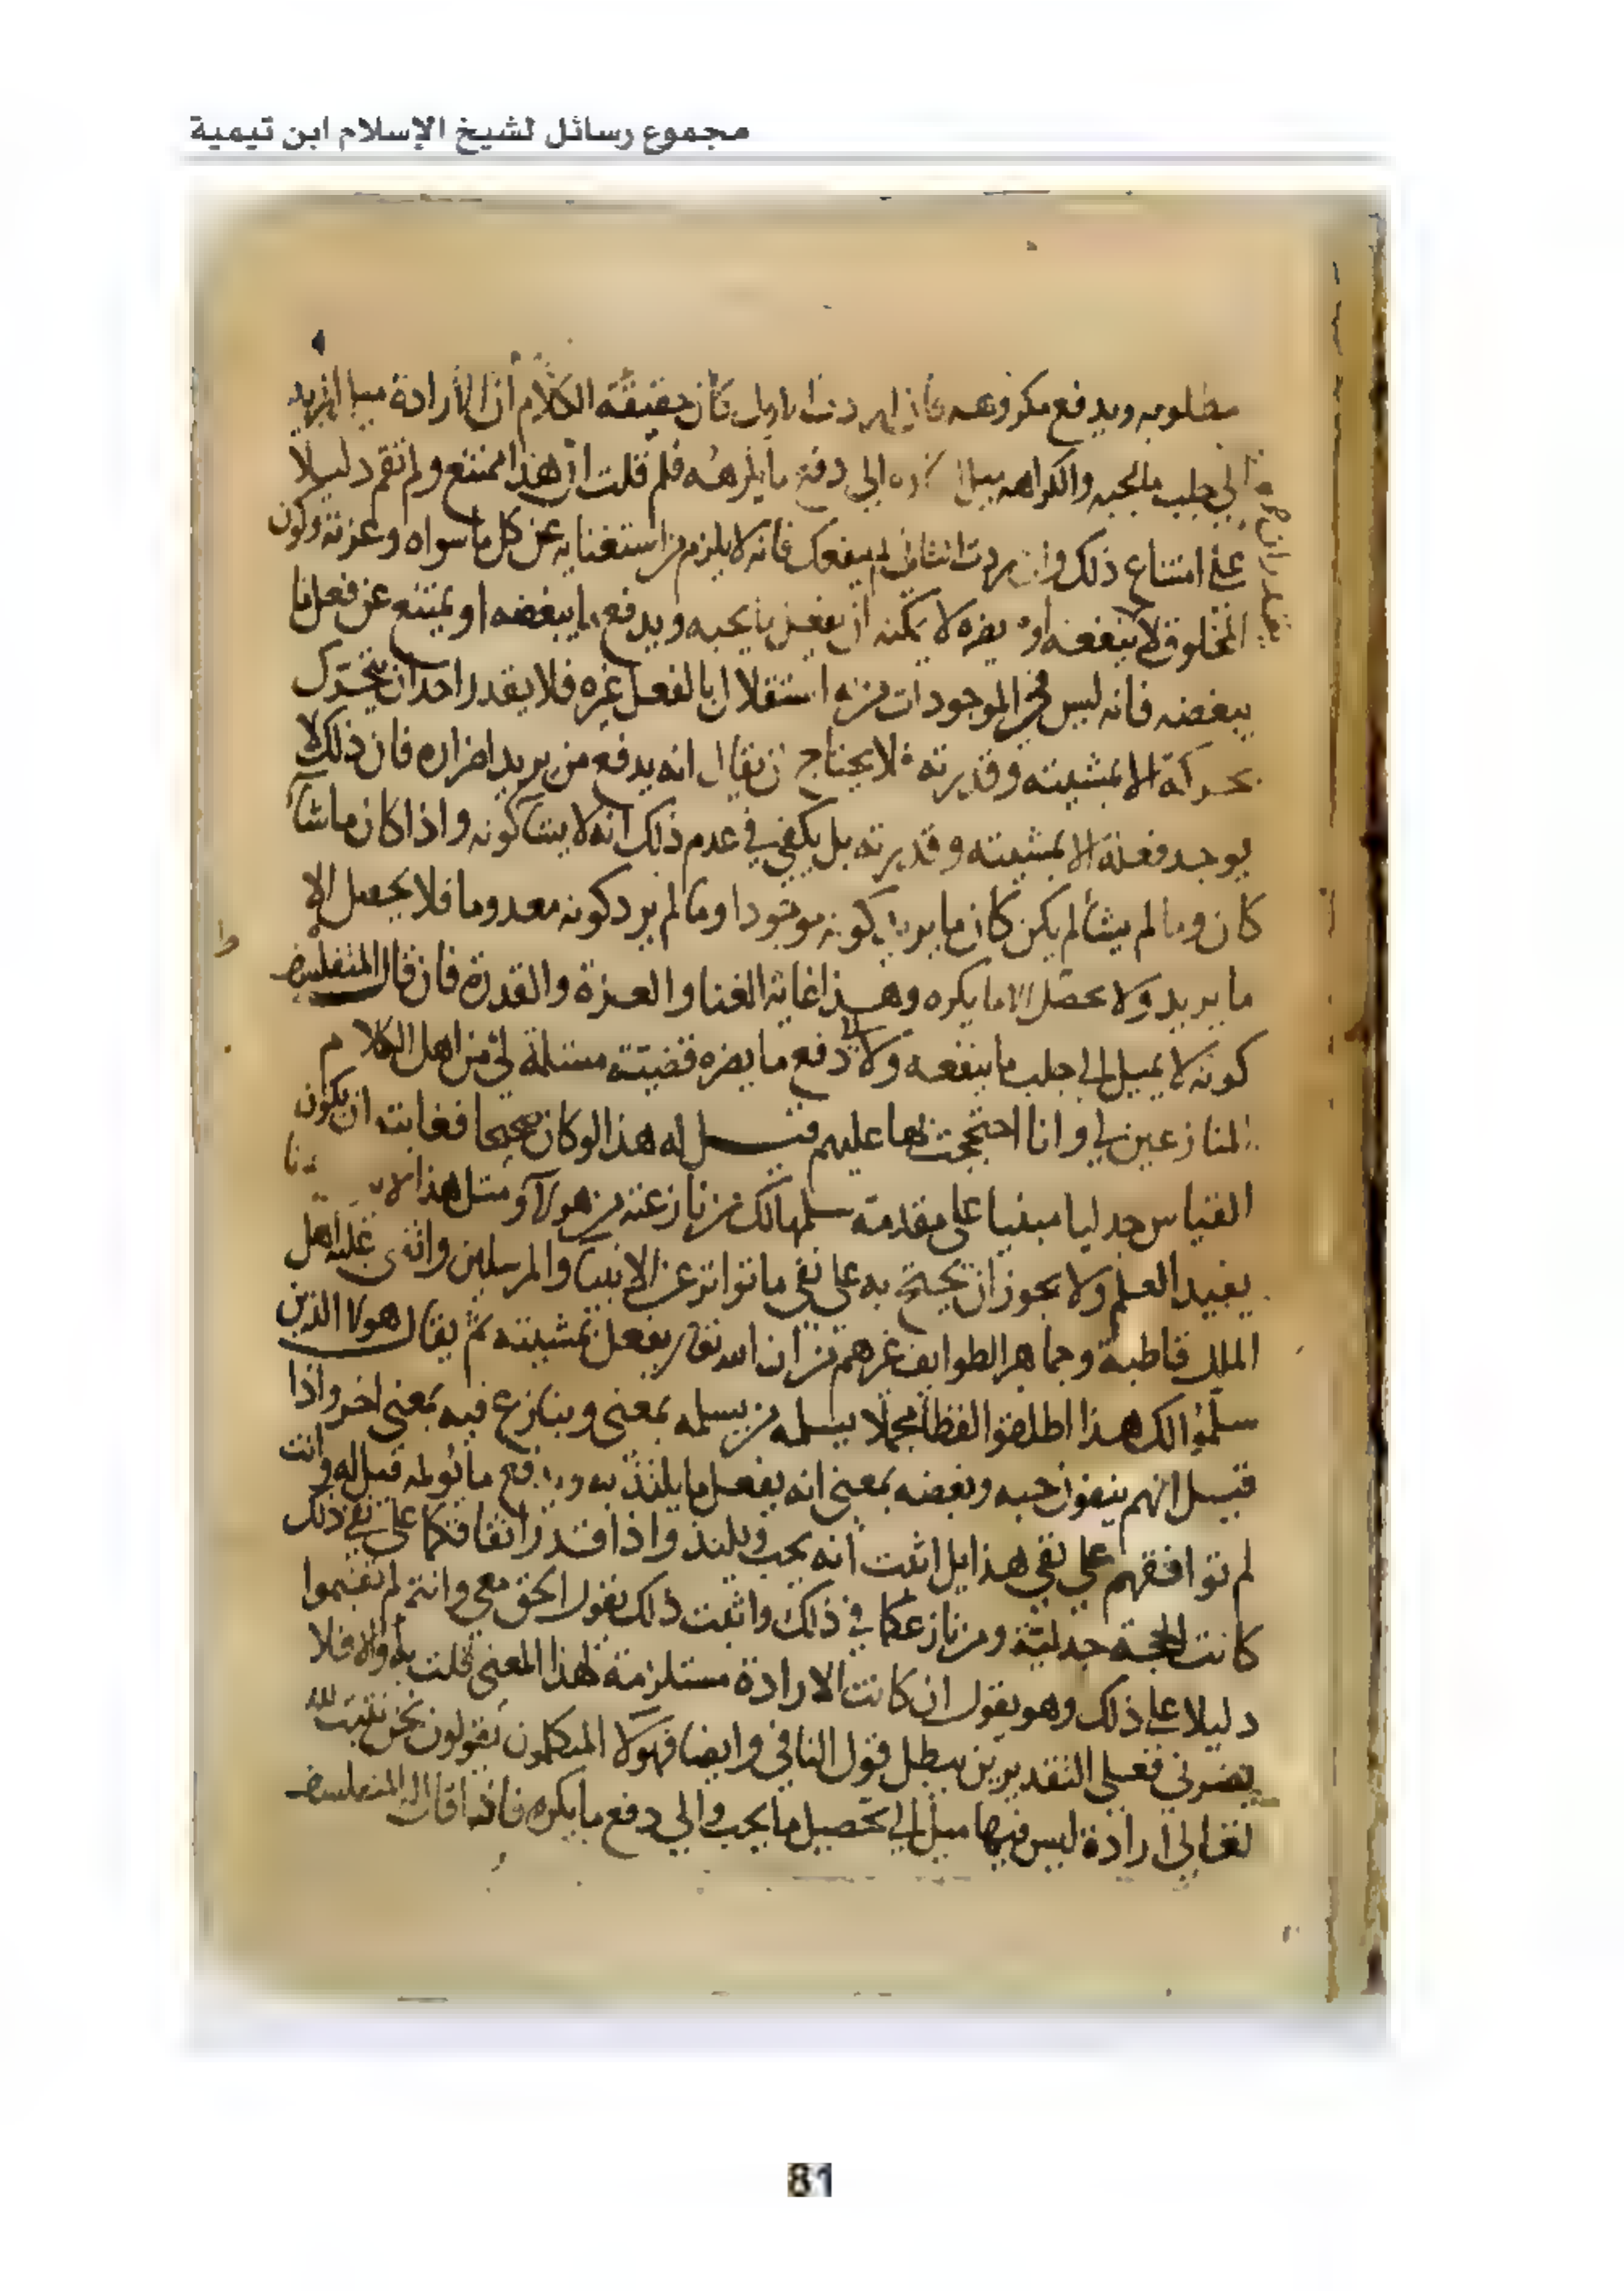 مجموع رسائل لشيخ الإسلام ابن تيمية
مطلوبه ويدفع مكروهه فان اردت الاول كان حقيقة الكلام ان الارادة ميل المريد
الي جلب ما يحبه والكراهه ميل الي دفع ما يكرهه فلم قلت ان هذا ممتنع ولم تقم دليلا
علي امتناع ذلك وان اردت الثاني لم ينفعك فانه لا يلزم من استغنايه عن كل ما سواه وعزته وكون
المخلوق لا ينفعه او يضره لا يمكنه ان يفعل ما يحبه ويدفع ما يبغضه او يمتنع عن فعل ما
يبغضه فانه ليس في الموجودات استقلال بالفعل غيره فلا يقدر احد ان يتحرك
حركة الا بمشيته وقدرته فلا يحتاج ان يقال انه يدفع من يريد اضراره فان ذلك لا
يوجد فعله الا بمشيته وقدرته بل يكفي في عدم ذلك انه لا يشآ كونه واذا كان ما شآ
كان وما لم يشأ لم يكن كان ما يريد كونه موجودا وما لم يرد كونه معدوما فلا يحصل الا
ما يريد ولا يحصل ما يكره وهذا غاية الغنا والعزة والقدرة فان قال المتفلسف
كونه لا يميل الي جلب ما ينفعه ولا الي دفع ما يضره قضية مسلمة لي من اهل الكلام
المنازعين لي وانا احتججت بها عليهم قيل له هذا لو كان صحيحا فغايته ان يكون
القياس جدليا مبنيا علي مقدمة سلمها لك من نازعته من هولآ ومثل هذا لا
يفيد العلم ولا يجوز ان يحتج به علي نفي ما تواتر عن الانبيآ والمرسلين واتفق عليه اهل
الملل قاطبة وجماهير الطوايف غيرهم من ان الله تعالي يفعل بمشيته ثم يقال هولا الذين
سلموا لك هذا اطلقوا لفظا مجملا يسلمه من يسلمه بمعني وينازع فيه بمعني اخر واذا
قيل انهم ينفون حبه وبغضه بمعني انه يفعل ما يلتذ به ويدفع ما يؤلمه قيل له وانت
لم توافقهم علي نفي هذا بل اثبت انه يحب ويلتذ واذا قدر اتفاقكما علي نفي ذلك
كانت الحجة جدلية ومن نازعكما في ذلك واثبت ذلك يقول الحق معي وانتم لم تقيموا
دليلا علي ذلك وهو يقول ان كانت الارادة مستلزمة لهذا المعني قلت به والا فلا
يضرني فعلي التقديرين يبطل قول النافي وايضا فهولآ المتكلمون يقولون نحن نثبت لله
تعالي ارادة ليس فيها ميل الي تحصيل ما يحب والي دفع ما يكره فاذا قال المتفلسف
81